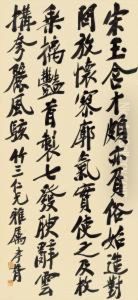 宋玉含才頗亦負俗始造對
問放懷寥廓氣實使之及枚
乘摛豔首製七發腴辭雲
構夸麗風駭 竹三仁兄雅屬 孝胥